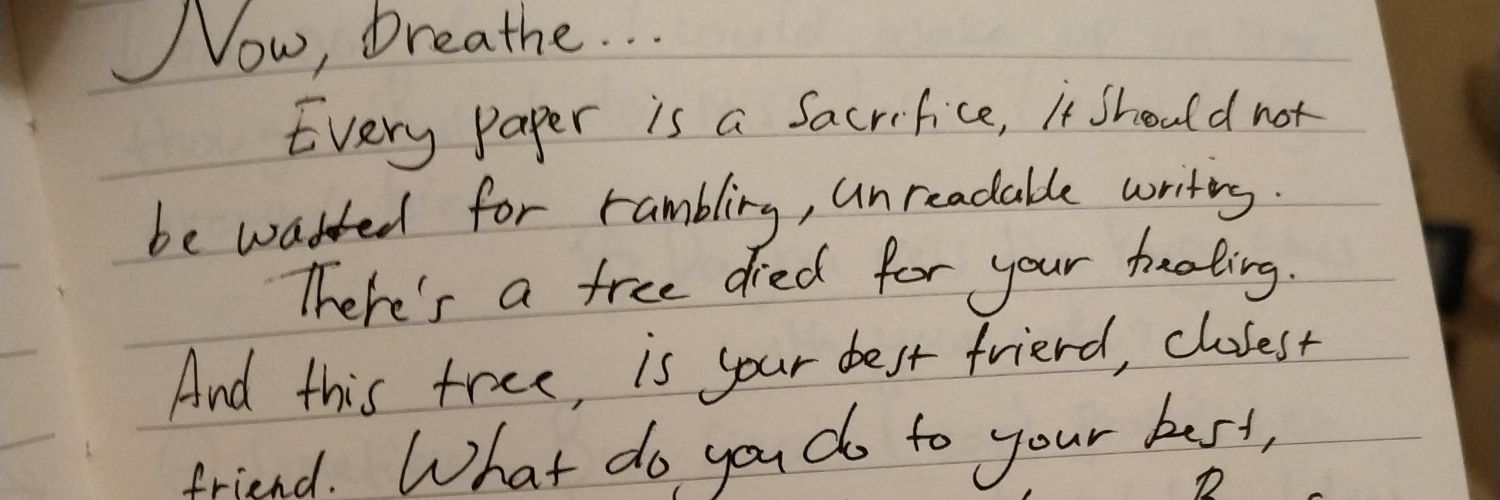 Now, breathe...
Every paper is a sacrifice, it should not
be wasted for rambling, unreadable writing.
There's a tree died for your healing.
And this tree, is your best friend, closest
friend. What do you do to your best,